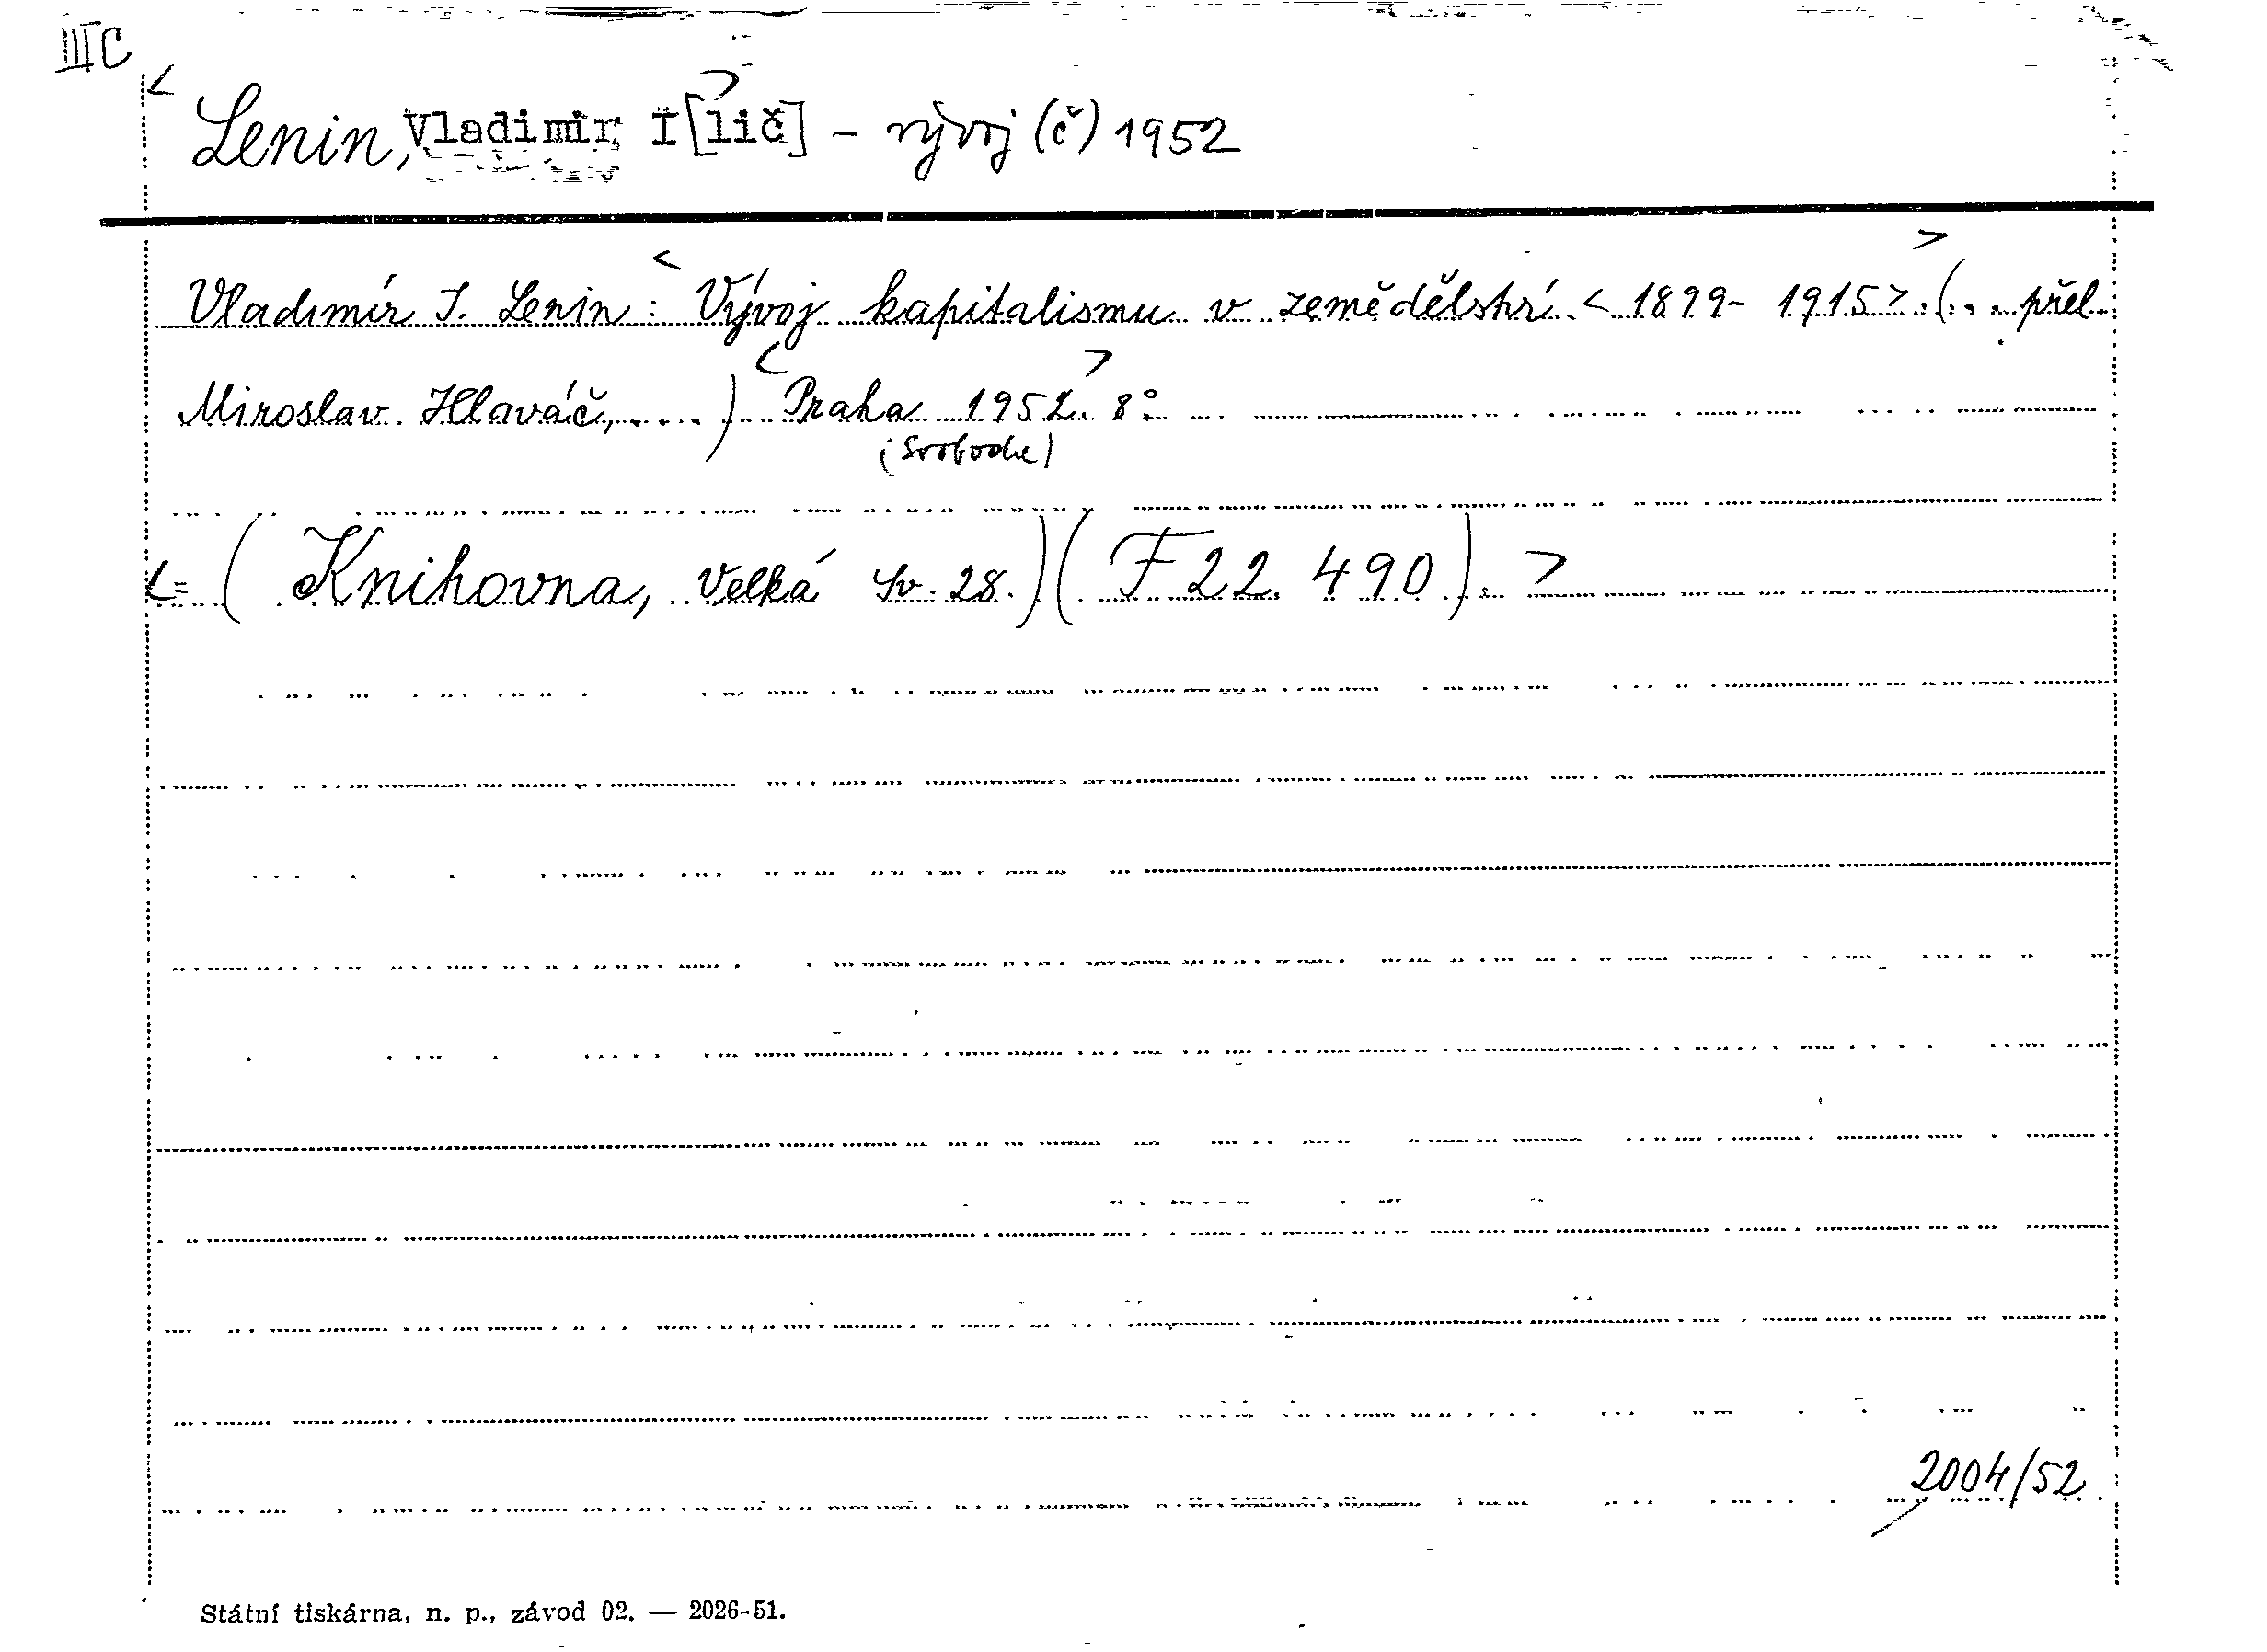 III C
< Lenin, Vladimir I[lič] > - vývoj (č) 1952
Vladimír I. Lenin: < Vývoj kapitalismu v zemědělství < 1899-1915 >. > (... přel.
Miroslav Hlaváč, ....) < Praha 1952 > 8°
(Svoboda)
<= (Knihovna, Velká sv. 28.) (F 22.490). >
2004/52
Státní tiskárna, n. p., závod 02. — 2026-51.